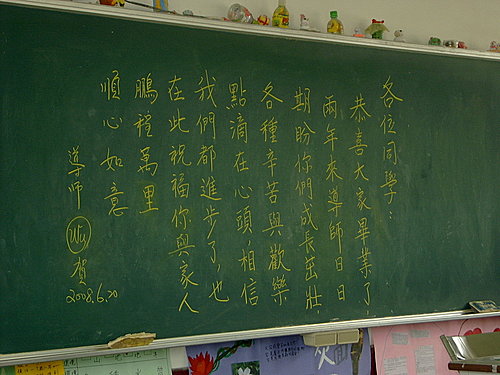 各位同學：
恭喜大家畢業了，
兩年來導師日日
期盼你們成長茁壯，
各種辛苦與歡樂
點滴在心頭，相信
我們都進步了，也
在此祝福你與家人
鵬程萬里
順心如意
導師 Wu 賀
2008.6.20